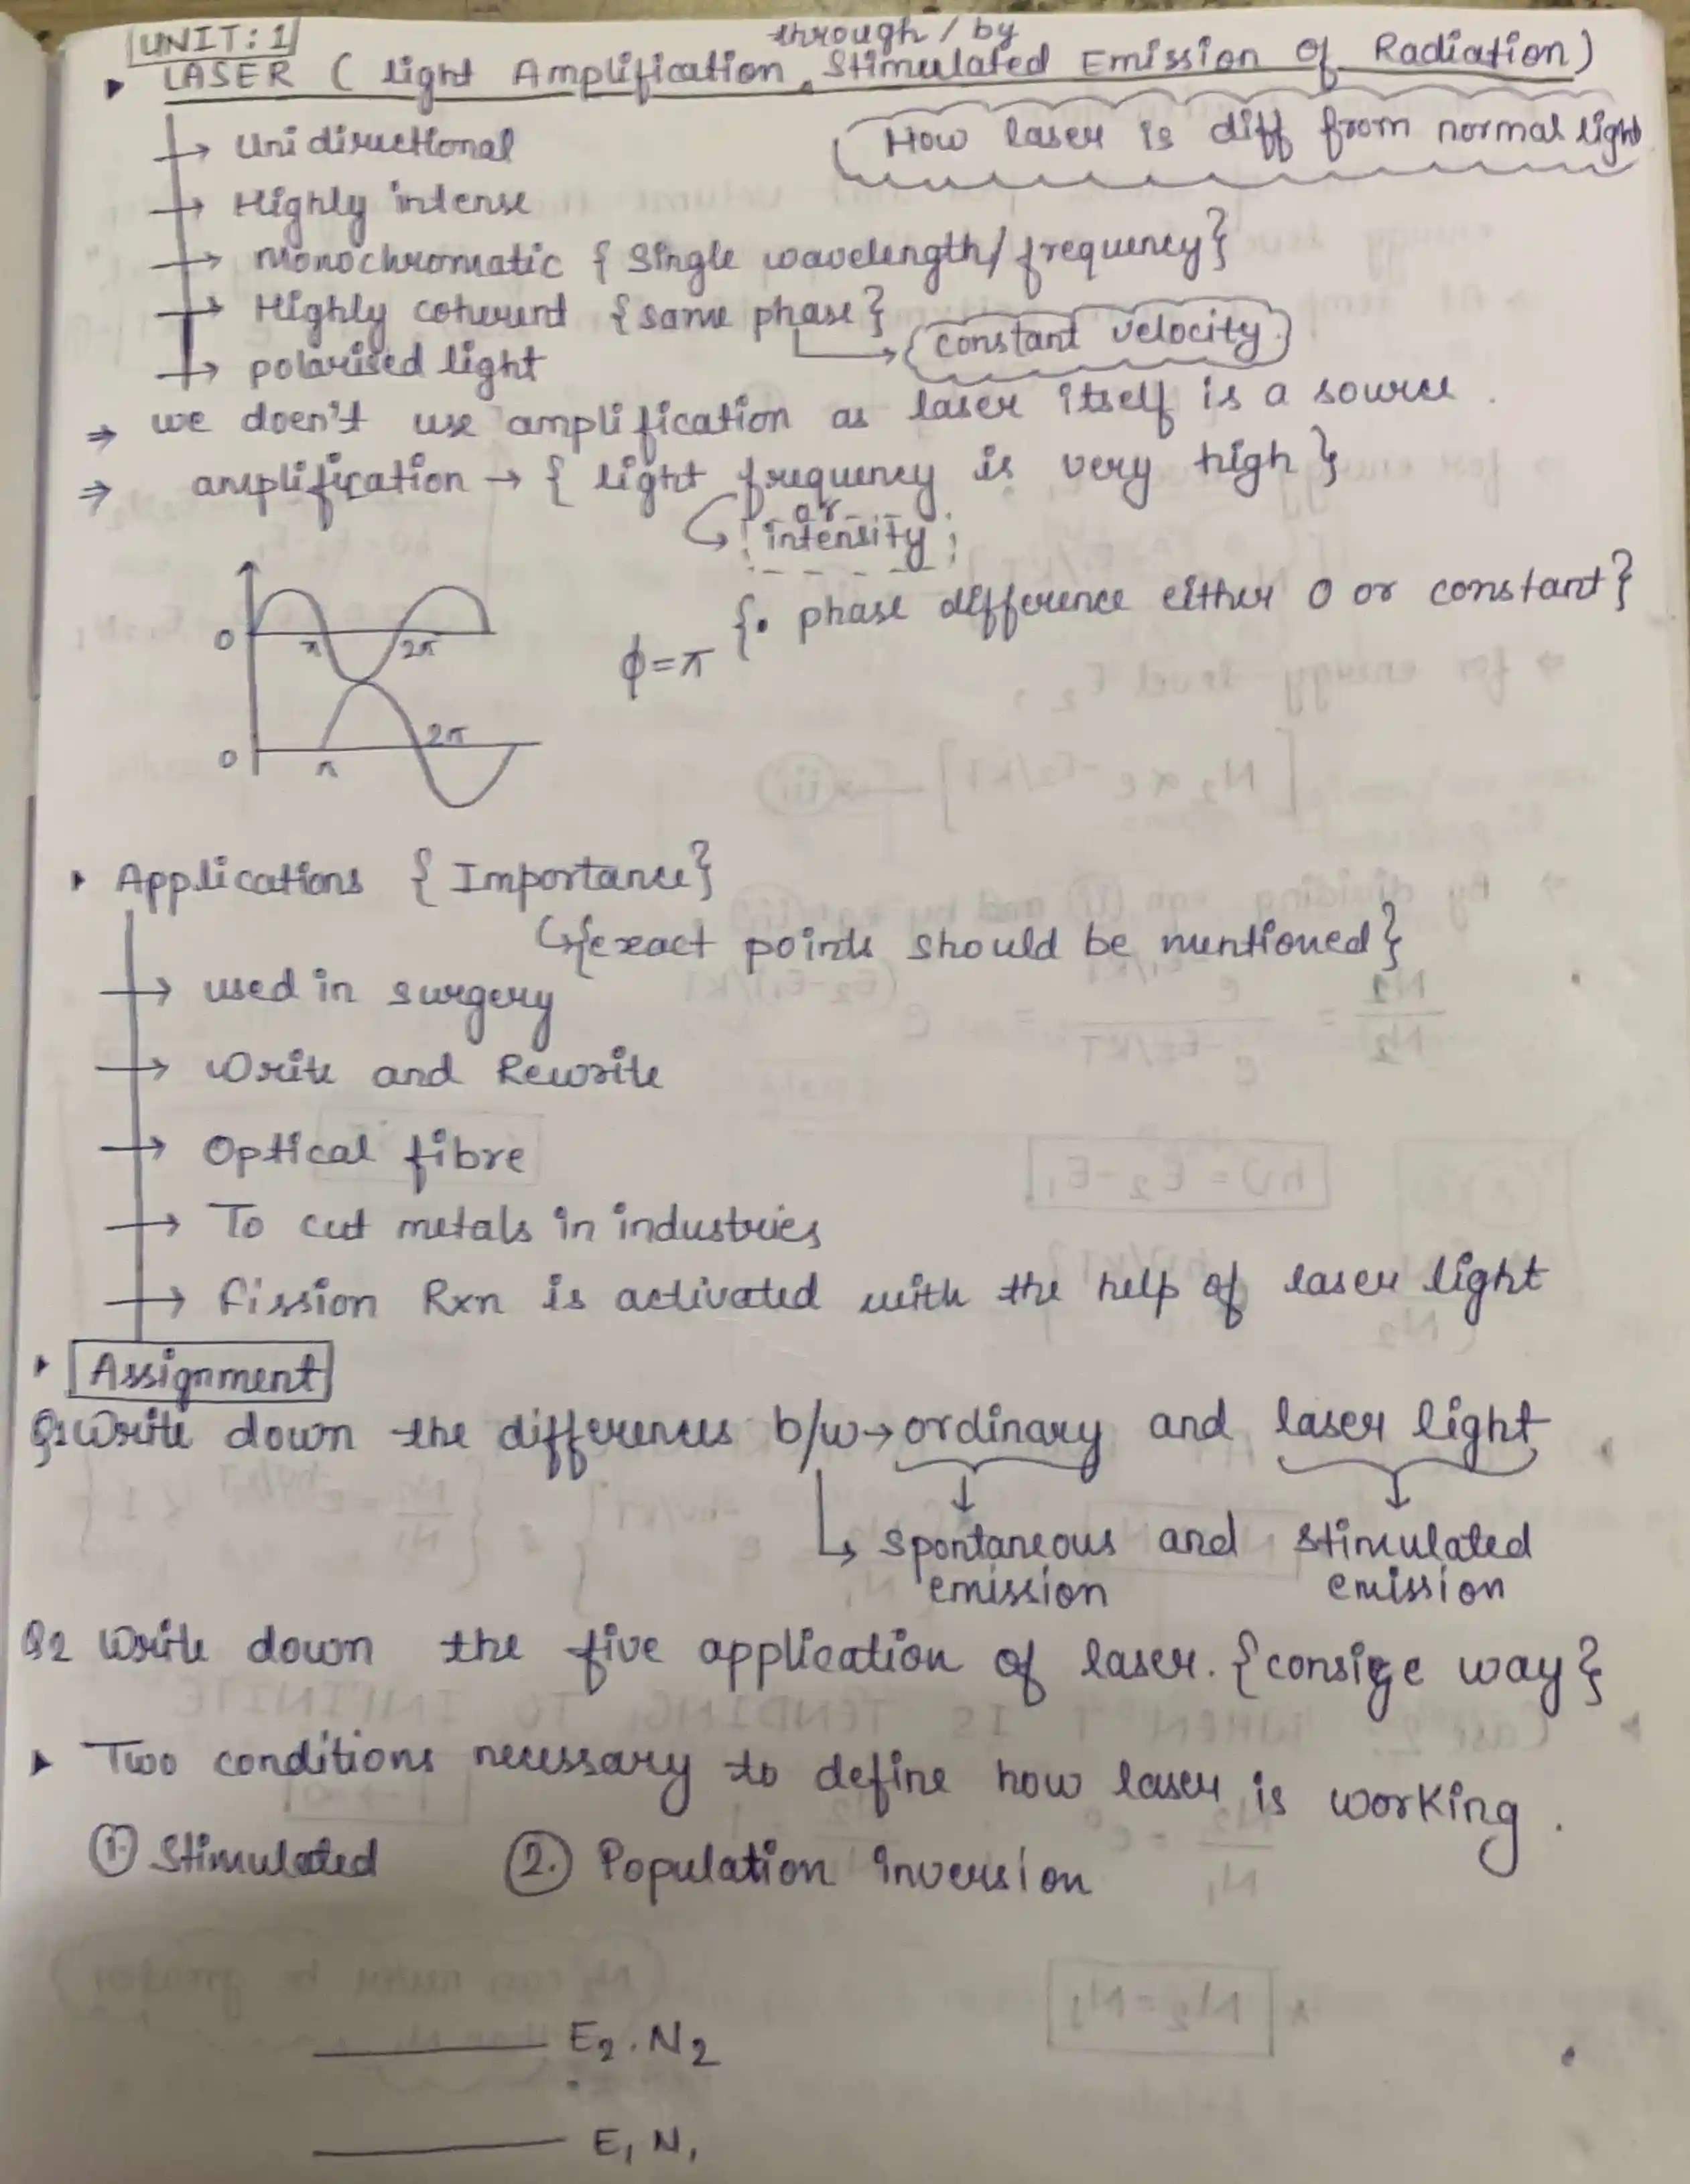 UNIT: 1
through / by
LASER ( light Amplification, Stimulated Emission Of Radiation)
→ Unidirectional
How laser is diff from normal light
→ Highly intense
→ Monochromatic { Single wavelength/frequency}
→ Highly coherent {same phase}
→ constant velocity.
→ polarised light
⇒ we doen't use amplification as laser itself is a source.
⇒ amplification → { light frequency is very high }
or
intensity
{• phase difference either 0 or constant}
ϕ=π
0 π 2π
0 π 2π
Applications { Importance}
{exact points should be mentioned}
→ used in surgery
→ Write and Rewrite
→ Optical fibre
→ To cut metals in industries
→ fission Rxn is activated with the help of laser light
Assignment
Q1 Write down the differences b/w → ordinary and laser light
↳ spontaneous and stimulated
emission emission
Q2 Write down the five application of laser. {consige way}
Two conditions necessary to define how laser is working.
① Stimulated ②. Population inversion
E2. N2
E1 N1